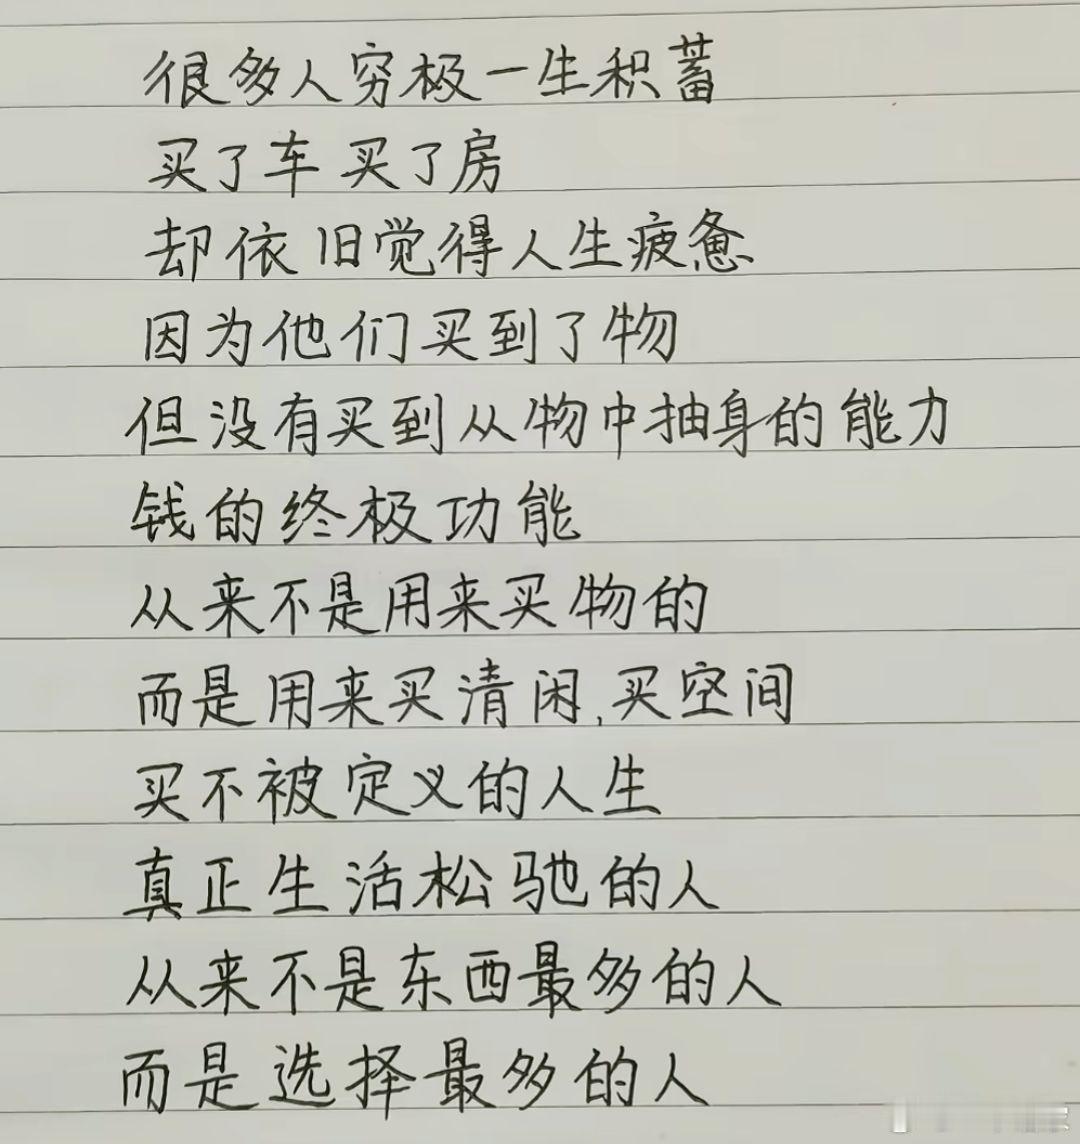 很多人穷极一生积蓄
买了车 买了房
却依旧觉得人生疲惫
因为他们买到了物
但没有买到从物中抽身的能力
钱的终极功能
从来不是用来买物的
而是用来买清闲,买空间
买不被定义的人生
真正生活松驰的人
从来不是东西最多的人
而是选择最多的人